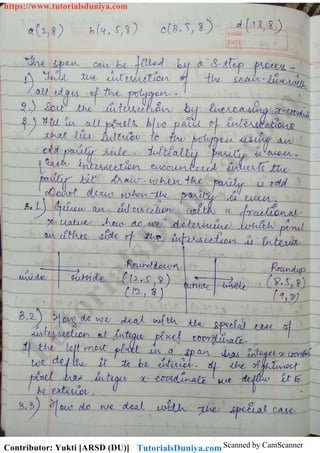 https://www.tutorialsduniya.com
a(2,8) b(4.5,8) c(8.5,8) d(13,8)
PAGE
DATE
The span can be filled by a 3-step process -
1) Find the intersection of the scan-line with
all edges of the polygon.
2.) Sort the intersection by increasing x-coordi
3.) Fill in all pixels b/w pairs of intersections
that lies interior to the polygon using an
odd parity rule. Initially parity is even.
Each intersection encountered inverts the
parity bit. draw when the parity is odd
Donot draw when the parity is even.
3.1) Given an intersection with a fractional
x-value, how do we determine which pixel
on either side of the intersection is Interior
Rounddown
Roundup
inside outside (12.5, 8) outside inside (8.5, 8)
(12, 8) (9, 8)
3.2) How do we deal with the special case of
intersection at integer pixel coordinate.
If the left most pixel in a span has integer x-coordi
we define it to be interior. If the rightmost
pixel has integer x-coordinate we define it to
be exterior.
3.3) How do we deal with the special case
Contributor: Yukti [ARSD (DU)] TutorialsDuniya.com Scanned by CamScanner